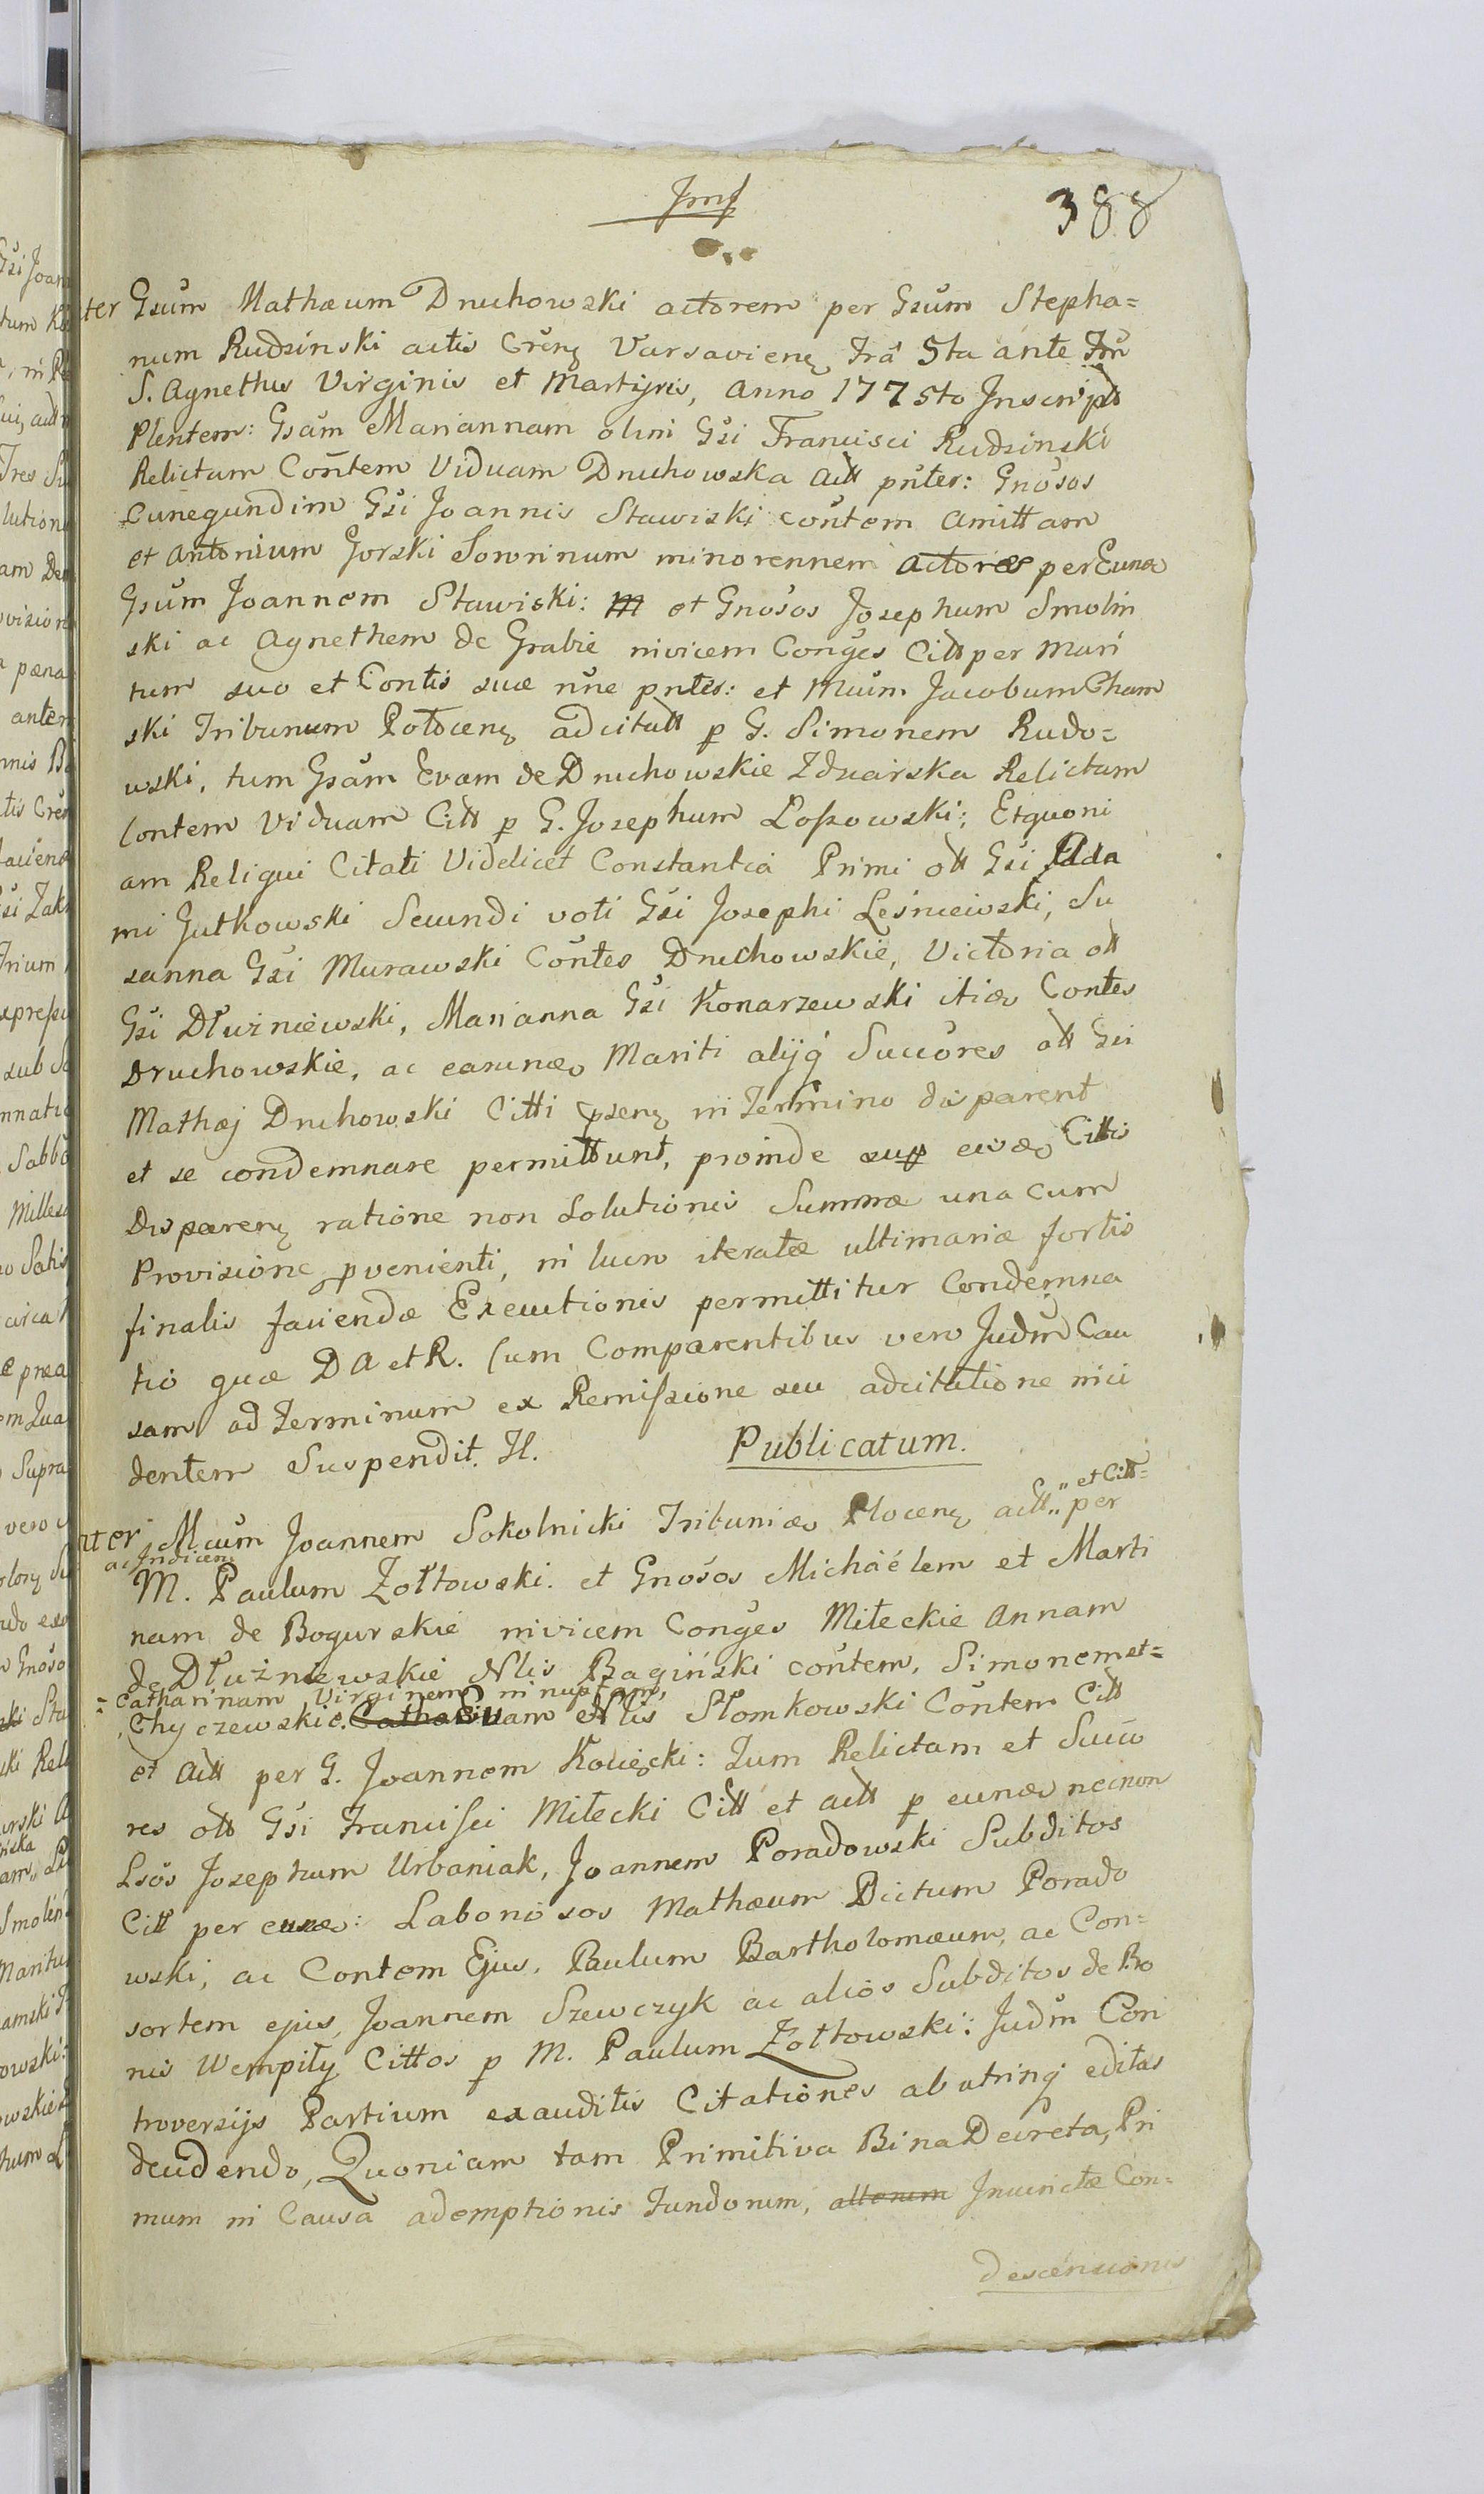 388
Inter Gsum Mathæum Druchowski actorem per Gsum Stepha=
num Rudzinski actis Cren Varsavien Fra 5ta ante Fm
S. Agnethis Virginis et Martyris, Anno 1775to Inscript
Plentem: Gsam Mariannam olim Gsi Francisci Rudzinski
Relictam Contem Viduam Druchowska Actt pnter: Gnosos
Cunegundim Gsi Joannis Stawiski contem Amittam
et Antonium Gorski Sororinum minorennem Actores per Eunda
Gsum Joannem Stawiski: et Gnosos Josephum Smolin
ski ac Agnethem de Grabie invicem Conges Citt per Mari
tum suo et Contis suæ nne pntes: et Mcum Jacobum Cham
ski Tribunum Plocen adcitatt p G. Simonem Rudo=
wski, tum Gsam Evam de Druchowskie Zduarska Relictam
Contem Viduam Citt p G. Josephum Lossowski; Et quoni
am Reliqui Citati Videlicet Constantia Primi ott Gsi Ada
mi Gutkowski Secundi voti Gsi Josephi Leśniewski, Su
sanna Gsi Murawski Contes Druchowskie, Victoria ott
Gsi Dłużniewski, Marianna Gsi Konarzewski itidem Contes
Druchowskie, ac earundem Mariti alijq Succores ott Gsi
Mathæj Druchowski Citti psen in Termino disparent
et se condemnare permittunt, proinde sup eisdem Cittis
Disparen ratione non Solutionis Summæ una cum
Provisione pvenienti, in lucro iteratæ ultimariæ fortis
finalis faciendæ Executionis permittitur Condemna
tio quæ D A et R. Cum Comparentibus vero Judm Cau
sam ad Terminum ex Remissione seu adcitatione inci
dentem Suspendit. It. Publicatum.
Inter Mcum Joannem Sokolnicki Tribunidem Plocen actt " et Citt= per
ac Judicem
M. Paulum Zołtowski. et Gnosos Michaelem et Marti
nam de Bogurskie invicem Conges Miłeckie Annam
de Dłużniewskie Nlis Bagiński contem, Simonem et=
= Catharinam Virginem innuptam,
Chyczewskie. Evam Nlis Słomkowski Contem Citt
et Actt per G. Joannem Kocięcki: Tum Relictam et Succo
res ott Gsi Francisci Miłecki Citt et actt p eundem necnon
Lsos Josephum Urbaniak, Joannem Poradowski Subditos
Citt per eundem: Laboriosos Mathæum Dictum Porado
wski, ac Contem Ejus, Paulum Bartholomæum, ac Con=
sortem ejus, Joannem Szewczyk ac alios Subditos de Bo
nis Wempiły Cittos p M. Paulum Zołtowski: Judm Con
troversijs Partium exauditis Citationes ab utrinq editas
decidendo, Quoniam tam Primitiva Bina Decreta, Pri
mum in Causa ademptionis Fundorum, Inuinctæ Con=
descensionis